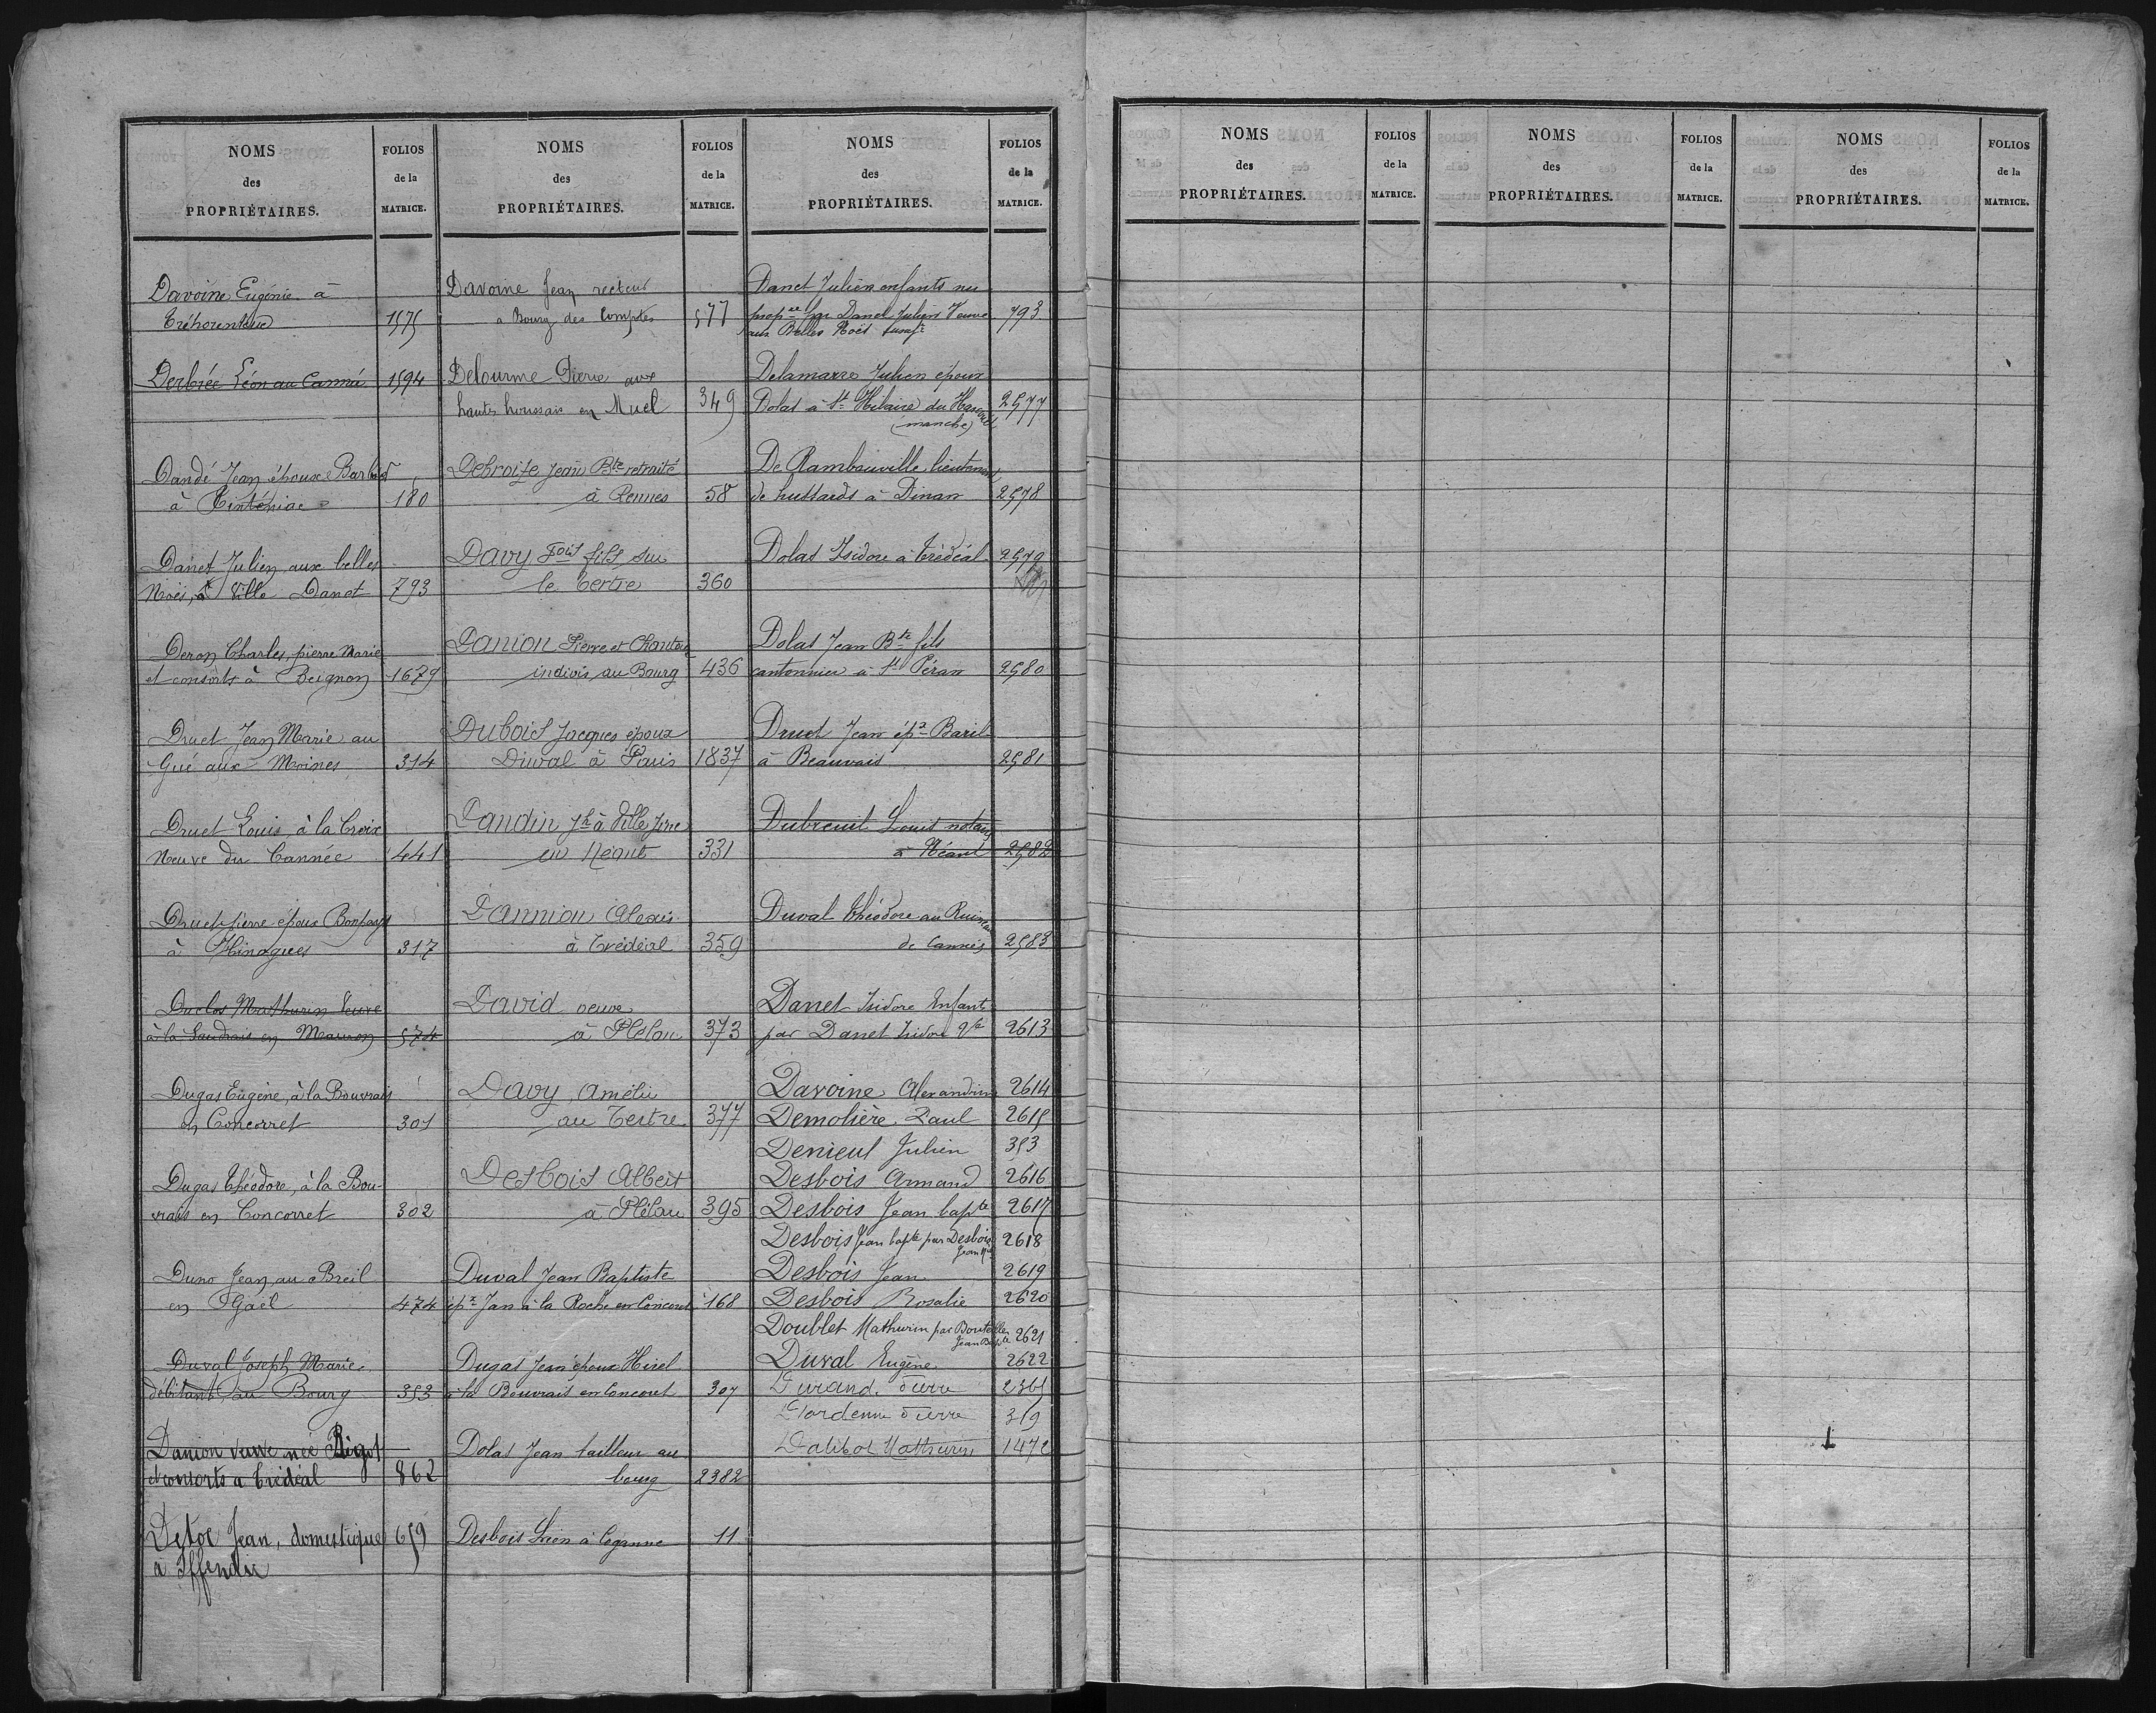 NOMS
des
PROPRIÉTAIRES.
FOLIOS
de la
MATRICE.
Davoine Eugénie à
Tréhorenteuc 1575
Derbrée Léon au Cannée 1594
Dandé Jean époux Barbot
à Tinténiac 180
Danet Julien aux belles
Noës, à Ville Danet 793
Deron Charles, pierre Marie
et consorts à Beignon 1679
Druet Jean Marie au
Gué aux Moines 314
Druet Louis, à la Croix
Neuve du Cannée 441
Druet pierre époux Bonfays
à Hinogues 317
Duclos Mathurin Veuve
à la Saudrais en Mauron 574
Dugas Eugène, à la Bouvrais
en Concorret 301
Dugas Théodore, à la Bou-
vrais en Concorret 302
Duno Jean, au Breil
en Gaël 474
Duval Joseph Marie
débitant, au Bourg 353
Danion veuve née Bigot
et consorts à Trédéal 862
Detoc Jean, domestique 659
à Iffendic
NOMS
des
PROPRIÉTAIRES.
FOLIOS
de la
MATRICE.
Davoine Jean recteur
à Bourg des Comptes 577
Delourme Pierre aux
hautes houssais en Muel 349
Debroize Jean Bte retraité
à Rennes 58
Davy Fois fils, sur
le tertre 360
Danion Pierre et
indivis au Bourg 436
Dubois Jacques époux
Duval à Paris 1837
Dandin Jh à Ville
en Néant 331
Dannion Alexis
à Trédéal 359
David veuve
à Plélan 373
Davy Amélie
au Tertre 377
Desbois Albert
à Plélan 395
Duval Jean Baptiste
épx Jan à la Roche en Concoret 168
Dugas Jean époux Hirel
à la Bouvrais en Concoret 307
Dolas Jean tailleur au
bourg 2382
Desbois à Coganne 11
NOMS
des
PROPRIÉTAIRES.
FOLIOS
de la
MATRICE.
Danet Julien enfants nu
propre par Danet Julien Veuve 793
aux Belles Noës usuf
Delamarre Julien époux
Dolas à St Hilaire du Harcouet 2577
(manche)
De Rambouville, lieutenant
de hussards à Dinan 2578
Dolas Isidore à Trédéal 2579
Dolas Jean Bte fils
cantonnier à St Péran 2580
Druet Jean épx Baril
à Beauvais 2581
Dubreuil Louis notaire
à Néant 2582
Duval Théodore au
de Cannée 2583
Danet Isidore Enfants
par Danet Isidore Ve 2613
Davoine Alexandrine 2614
Demolière Paul 2615
Denieul Julien 353
Desbois Armand 2616
Desbois Jean bapte 2617
Desbois Jean bapte par Desbois 2618
Jean Mie
Desbois Jean 2619
Desbois Rosalie 2620
Doublet Mathurin par Bouteiller 2621
Jean Bapte
Duval Eugène 2622
Durand Pierre 2365
Dardenne Pierre 319
Dalibot Mathurin 1472
NOMS
des
PROPRIÉTAIRES.
FOLIOS
de la
MATRICE.
NOMS
des
PROPRIÉTAIRES.
FOLIOS
de la
MATRICE.
NOMS
des
PROPRIÉTAIRES.
FOLIOS
de la
MATRICE.